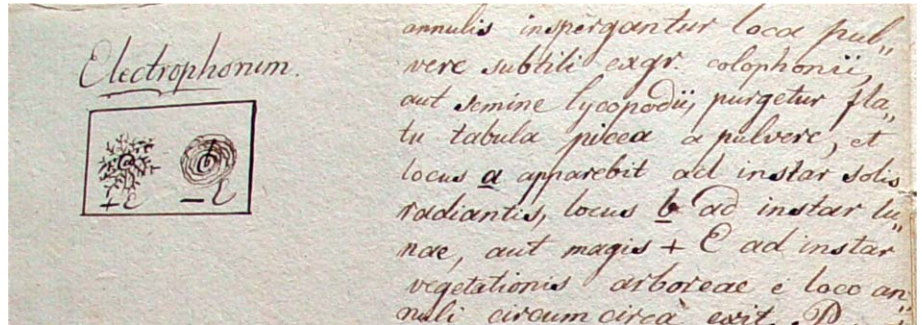 Electrophorum.
a b
+ E − E
annulis inspergantur loca pul„
vere subtili exgr. colophonii,
aut semine lycopodii, purgetur fla„
tu tabula picea a pulvere, et
locus a apparebit ad instar solis
radiantis, locus b ad instar lu„
nae, aut magis + E ad instar
vegetationis arboreae e loco an„
nuli circum circà exit.